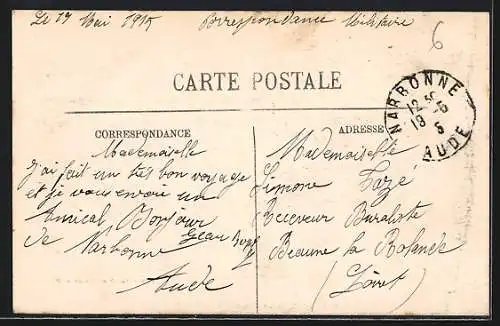 Le 17 Mai 1915 Correspondance Militaire
6
CARTE POSTALE
NARBONNE
12 30
19 -5
5
AUDE
CORRESPONDANCE
ADRESSE
Mademoiselle
J'ai fait un très bon voyage
et je vous envoie un
Amical Bonjour
de Narbonne Jean
Aude
Mademoiselle
Simone Fazé
Receveur Buraliste
Beaune la Rolande
(Loiret)